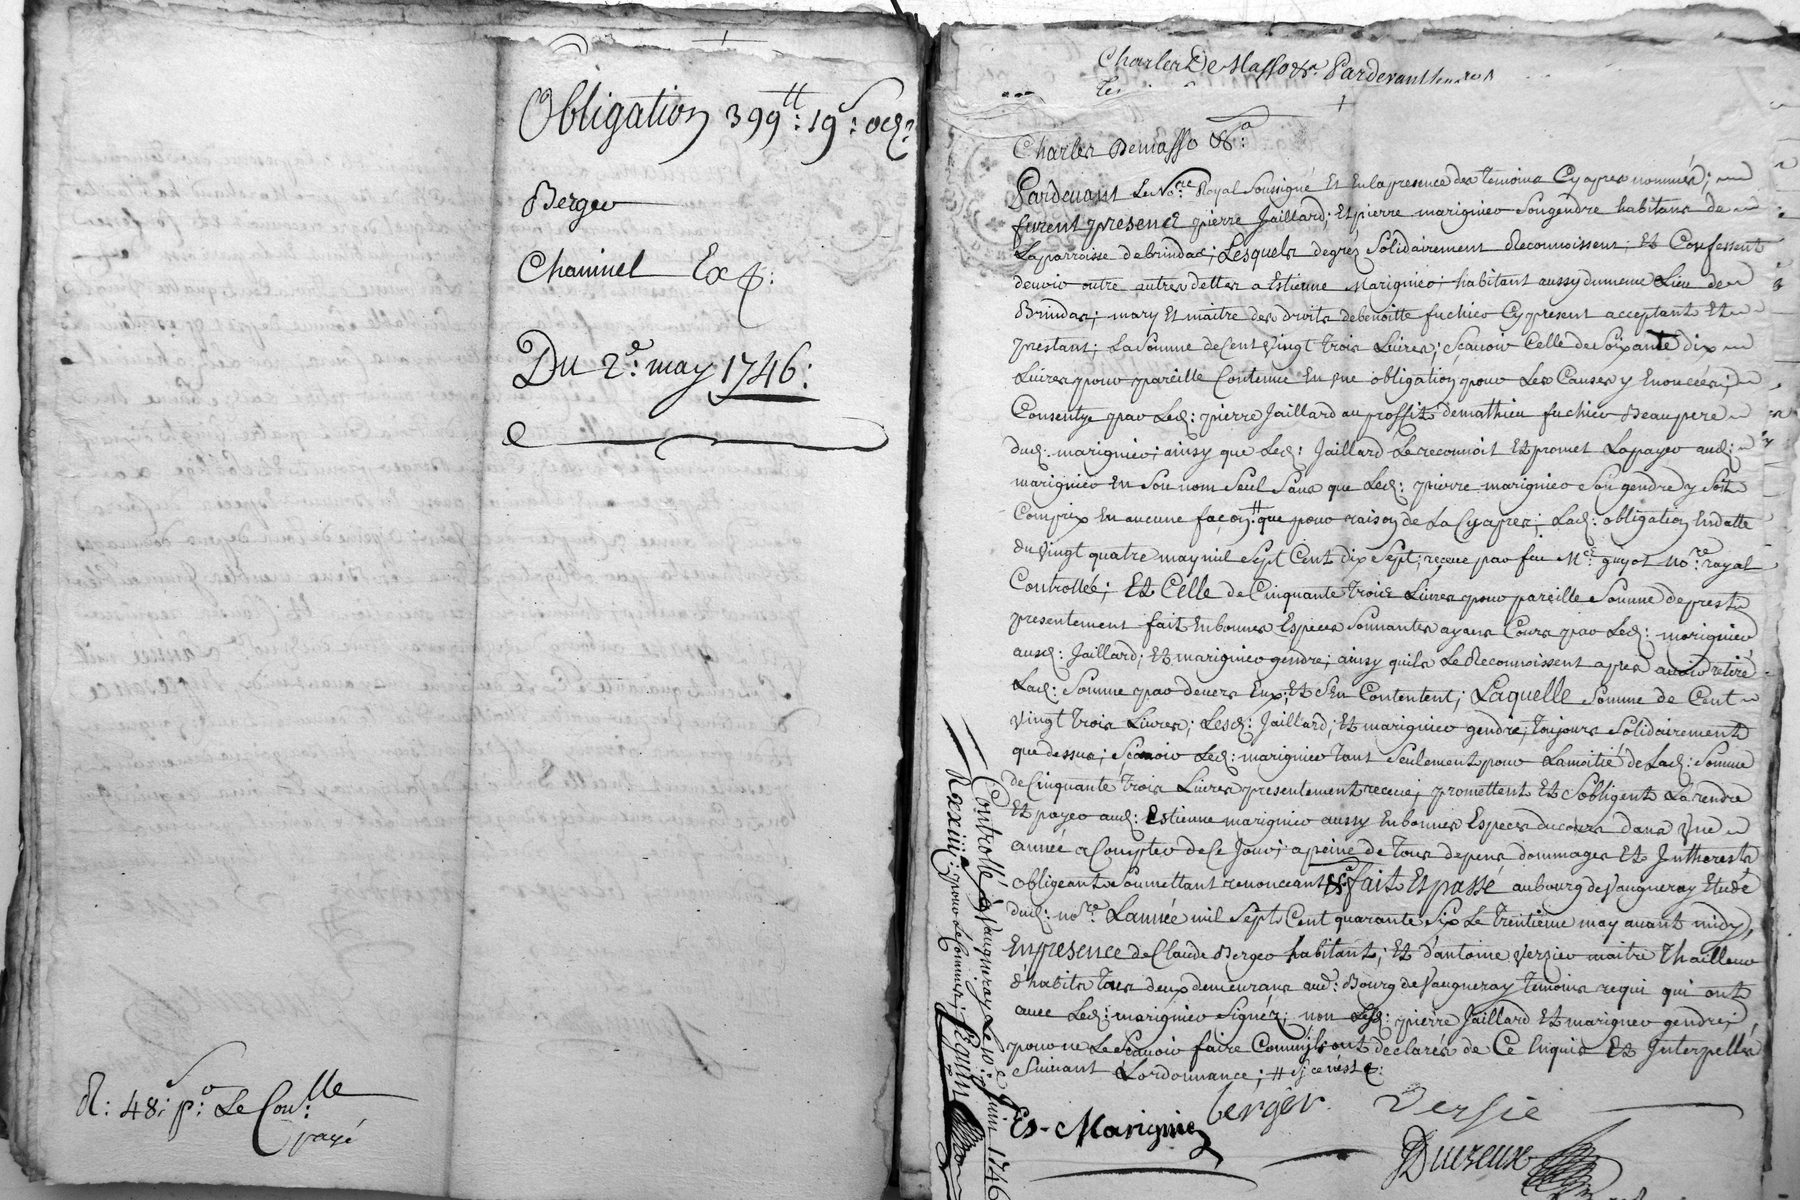 Obligation 399tt: 19s: 0d:
Berger
Chaninel Exp:
Du 2e: may 1746:
R: 48: po: Le Con.lle
payé
Charles De Masso &a Pardevant
Charles Demasso &a:
Pardevant Le No.re Royal Soussigné Et En la presence des temoins Cyapres nommés;
furent presence pierre Jaillard; Et pierre marignier Son gendre habitans de
La parroisse de brindas; Lesquels de gréz Solidairement Reconnoissent; Et Confessent
devoir outre autres dettes a Estienne Marignier habitant aussy du meme Lieu de
Brindas; mary Et maitre des droits de benoitte fuchier Cy present acceptant Et
prestant; La Somme de Cent Vingt trois Livres; Scavoir Celle de Soixante dix
Livres pour pareille Contenue En une obligation pour Les Causes y Enoncées;
Consentye par Led: pierre Jaillard au proffit de mathieu fuchier Beaupere
dud: marignier; ainsy que Led: Jaillard Le reconnoit Et promet La payer aud:
marignier En Son nom Seul Sans que Led: pierre marignier Son gendre y Soit
Comprix En aucune façon # que pour raison de La Cyapres; Lad: obligation En datte
du Vingt quatre may mil Sept Cent dix Sept; receue par feu Me guyot No.re royal
Controllée; Et Celle de Cinquante trois Livres pour pareille Somme de prest
presentement fait En bonnes Especes Sonnantes ayans Cours par Led: marignier
ausd: Jaillard; Et marignier gendre; ainsy quils Le Reconnoissent apres avoir retiré
Lad: Somme par devers Eux; Et S'En Contentent; Laquelle Somme de Cent
Vingt trois Livres; Lesd: Jaillard; Et marignier gendre; toujours Solidairement
que dessus; Scavoir Led: marignier tant Seulement pour La moitié de Lad: Somme
de Cinquante trois Livres presentement receue; promettent Et S'obligent La rendre
Et payer aud: Estienne marignier aussy En bonnes Especes du cours dans Une
année a Compter de Ce Jour; a peine de tous depens dommages Et Intherests
obligeant Soumettant renonceant &a fait Et passé au bourg de Vaugneray Etude
dud: no.re L'année mil Sept Cent quarante Six Le trentieme may avant midy,
En presence de Claude Berger habitant; Et d'antoine Versier maitre thailleur
d'habits tous deux demeurans aud: Bourg de Vaugneray temoins requi qui ont
avec Led: marignier Signéz; non Lesd: pierre Jaillard Et marignier gendre;
pour ne Le Scavoir faire Comm'ils ont declarés de Ce Enquis Et Interpellés
Suivant L'ordonnance; # Si ce n'est
Es- Marignier berger Versie
Duizeux
Controllé a Vaugneray Le 10.e Juin 1746
R xxiiii s: pour Le Commis: Peguin